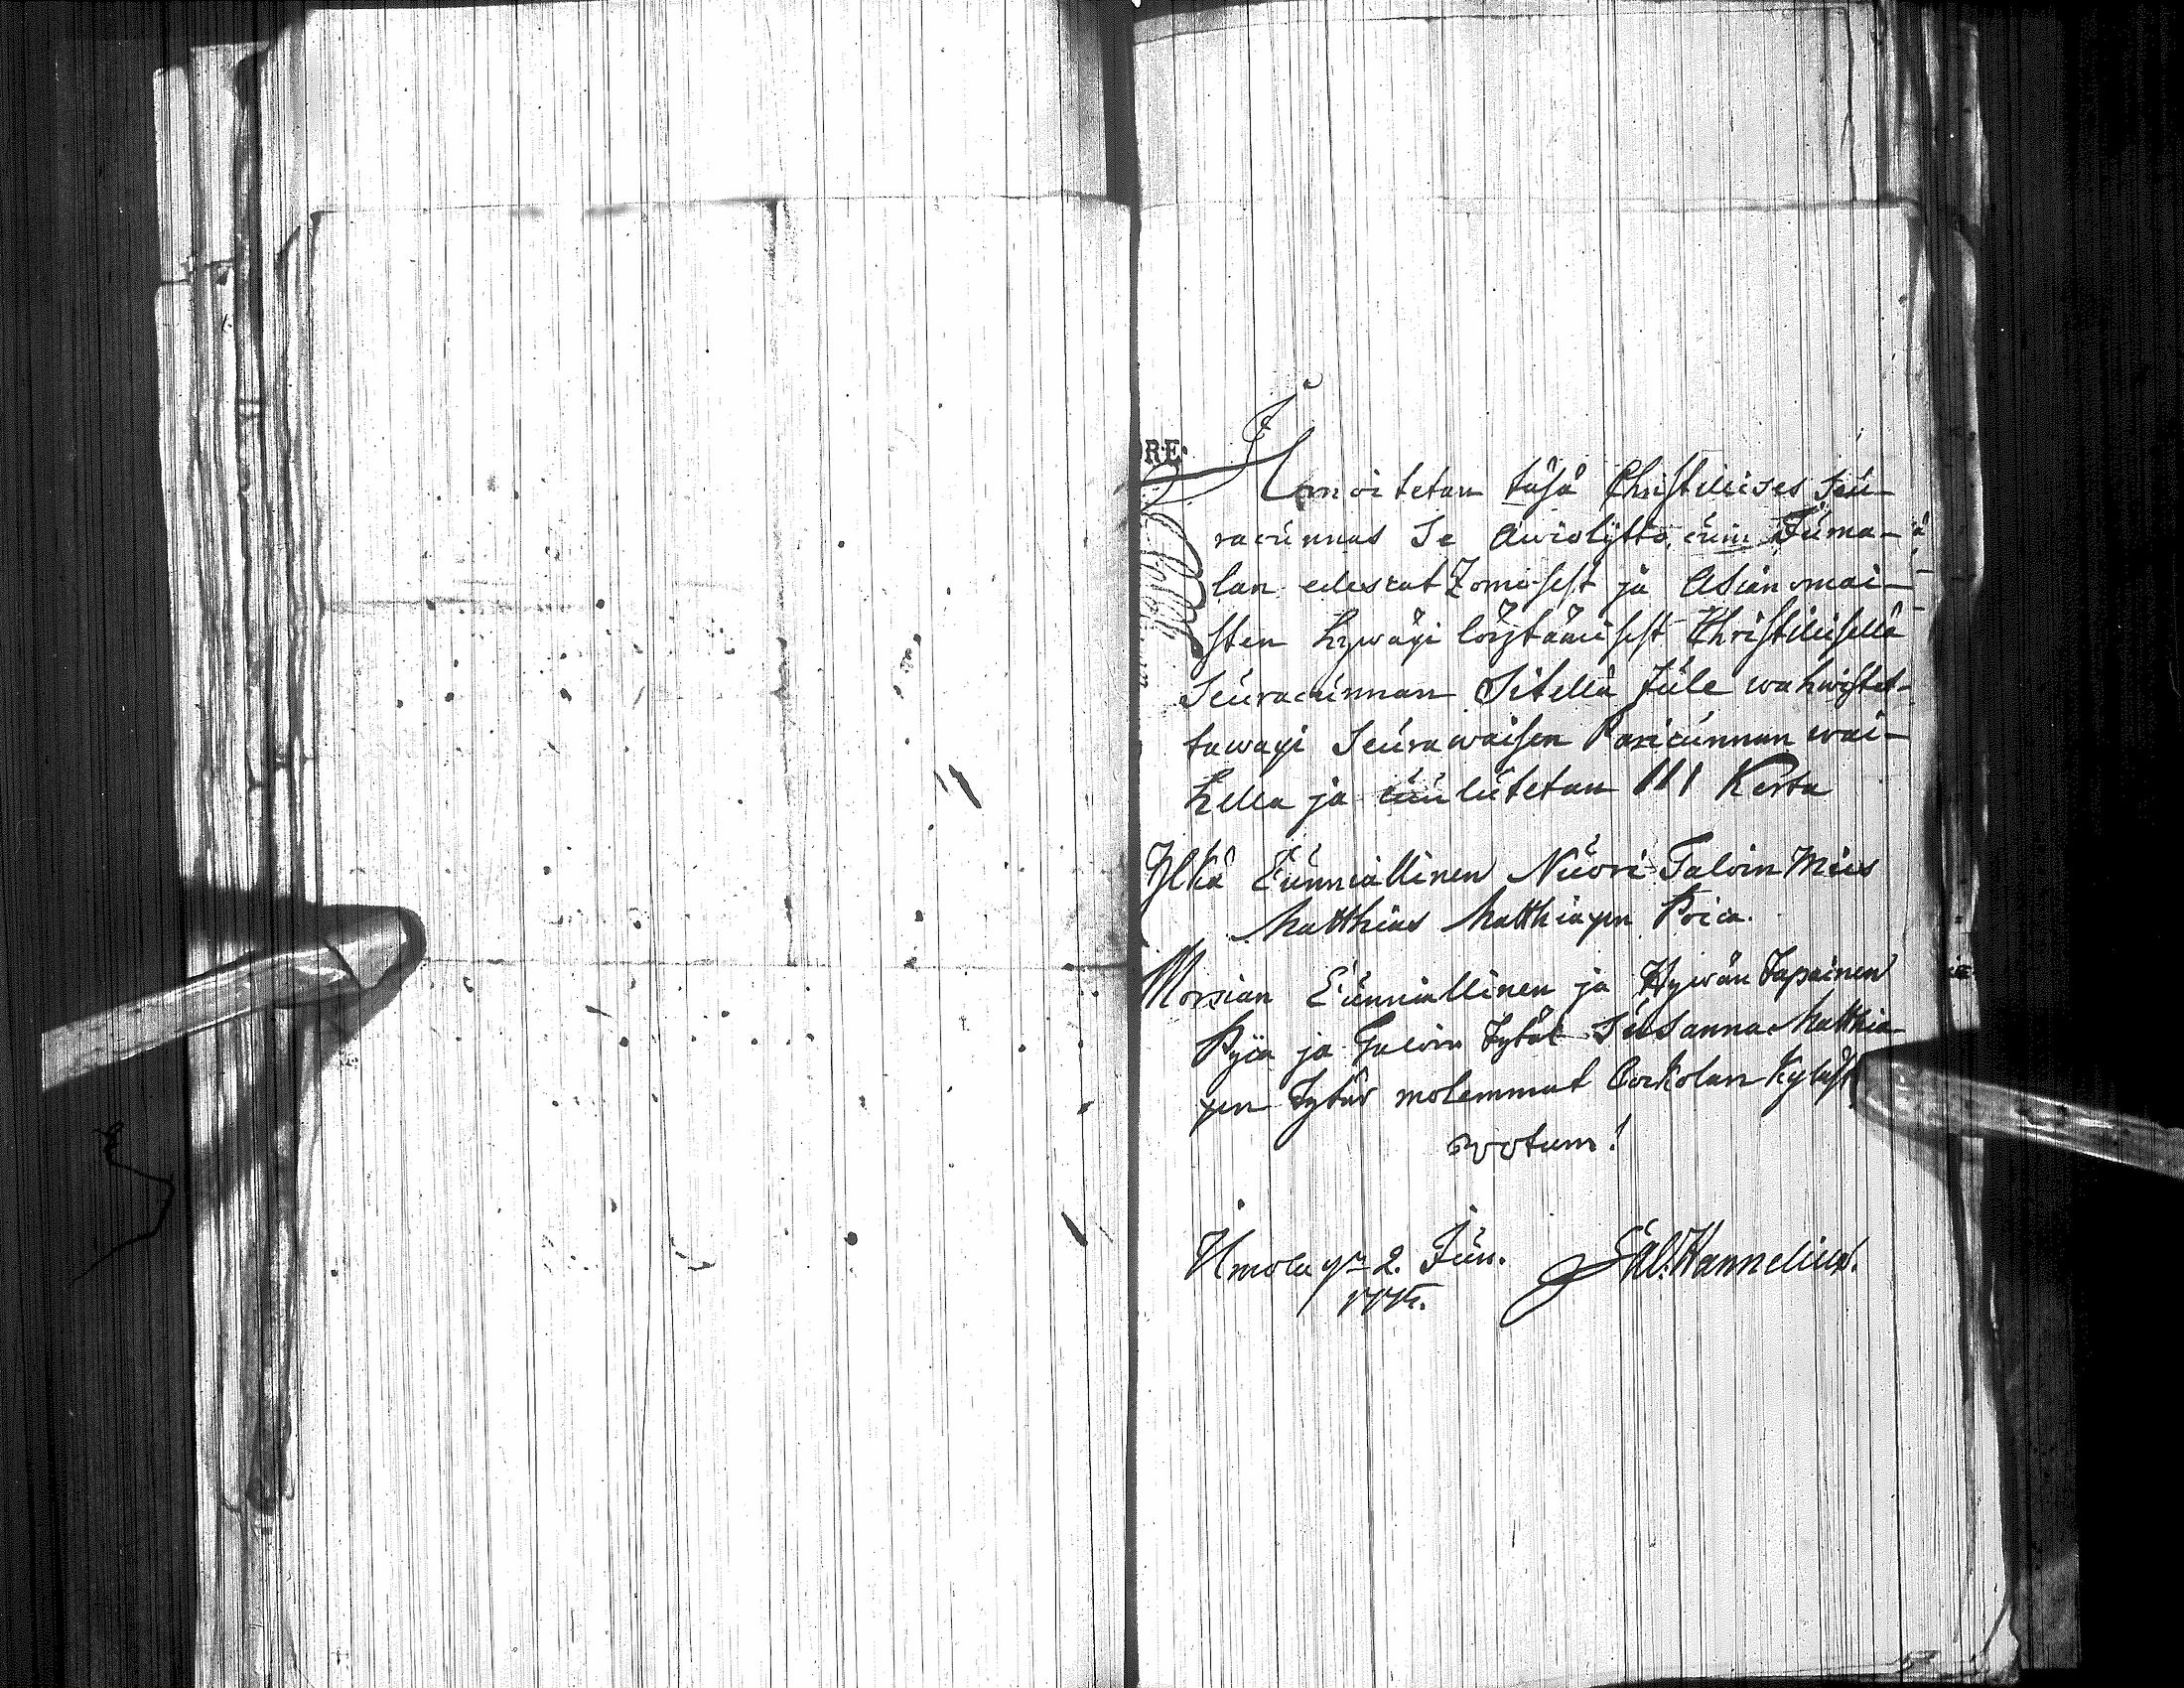 RE.
Ilmoitetan täsä Christillises Seu-
racunnas Se Awioliitto, cuin Juma-
lan edescatzomisest ja Asianomai-
sten hywäxi löytämisest Christillisellä
Seuracunnan Sitellä tule wahwistet-
tawaxi Seurawaisen Paricunnan wäi-
hellä ja cuulutetan III Kerta
Ylkä Cunniallinen Nuori Taloin Mies
Matthias Matthiaxen Poica.
Morsian Cunniallinen ja Hywän Tapainen
Pijca ja Taloin Tytär Susanna Matthia-
xen Tytär molemmat Corkolan Kyläst
votum!
Urmola 2. Jun.
Sal. Hannelius.